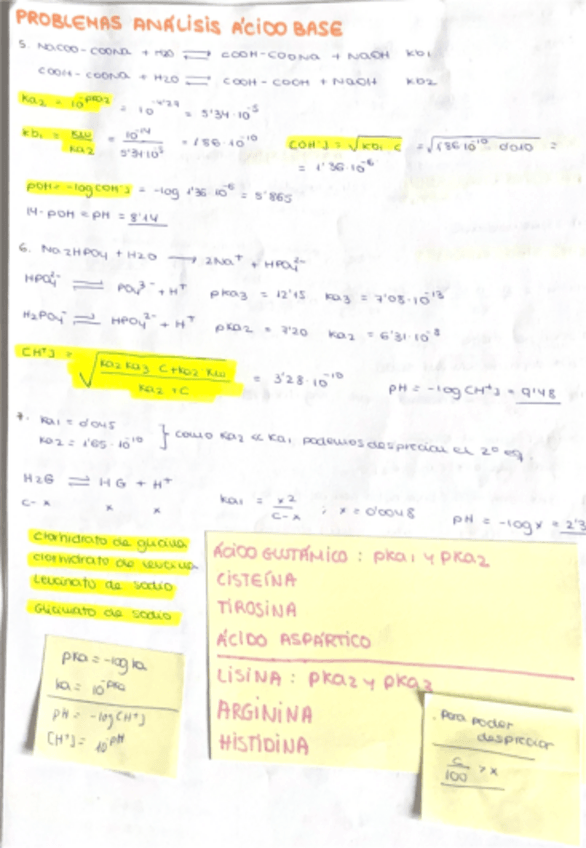 PROBLEMAS ANÁLISIS ÁCIDO BASE
5. NaCOO-COONa + H2O ⇌ COOH-COONa + NaOH Kb1
COOH-COONa + H2O ⇌ COOH-COOH + NaOH Kb2
Ka2 = 10^-pKa2 = 10^-4'29 = 5'34·10^-5
Kb1 = Kw/Ka2 = 10^-14/5'34·10^-5 = 1'86·10^-10 [OH-] = √Kb1·C = √1'86·10^-10·0'010 =
= 1'36·10^-6
pOH = -log[OH-] = -log 1'36·10^-6 = 5'865
14-pOH = pH = 8'14
6. Na2HPO4 + H2O → 2Na+ + HPO4^2-
HPO4^2- ⇌ PO4^3- + H+ pKa3 = 12'15 Ka3 = 7'08·10^-13
H2PO4^- ⇌ HPO4^2- + H+ pKa2 = 7'20 Ka2 = 6'31·10^-8
[H+] = √((Ka2 Ka3 C + Ka2 Kw)/(Ka2 + C)) = 3'28·10^-10 pH = -log[H+] = 9'48
7. Ka1 = 0'045
Ka2 = 1'65·10^-10 } como Ka2 << Ka1 podemos despreciar el 2º eq.
H2G ⇌ HG + H+
C-x x x Ka1 = x2/C-x ; x = 0'0048 pH = -log x = 2'3
Clorhidrato de glicina
Clorhidrato de leucina
Leucinato de sodio
Glicinato de sodio
ÁCIDO GLUTÁMICO : pKa1 y pKa2
CISTEÍNA
TIROSINA
ÁCIDO ASPÁRTICO
LISINA : pKa2 y pKa3
ARGININA
HISTIDINA
pKa = -log Ka
Ka = 10^-pKa
pH = -log[H+]
[H+] = 10^-pH
. Para poder
despreciar
C/100 > x